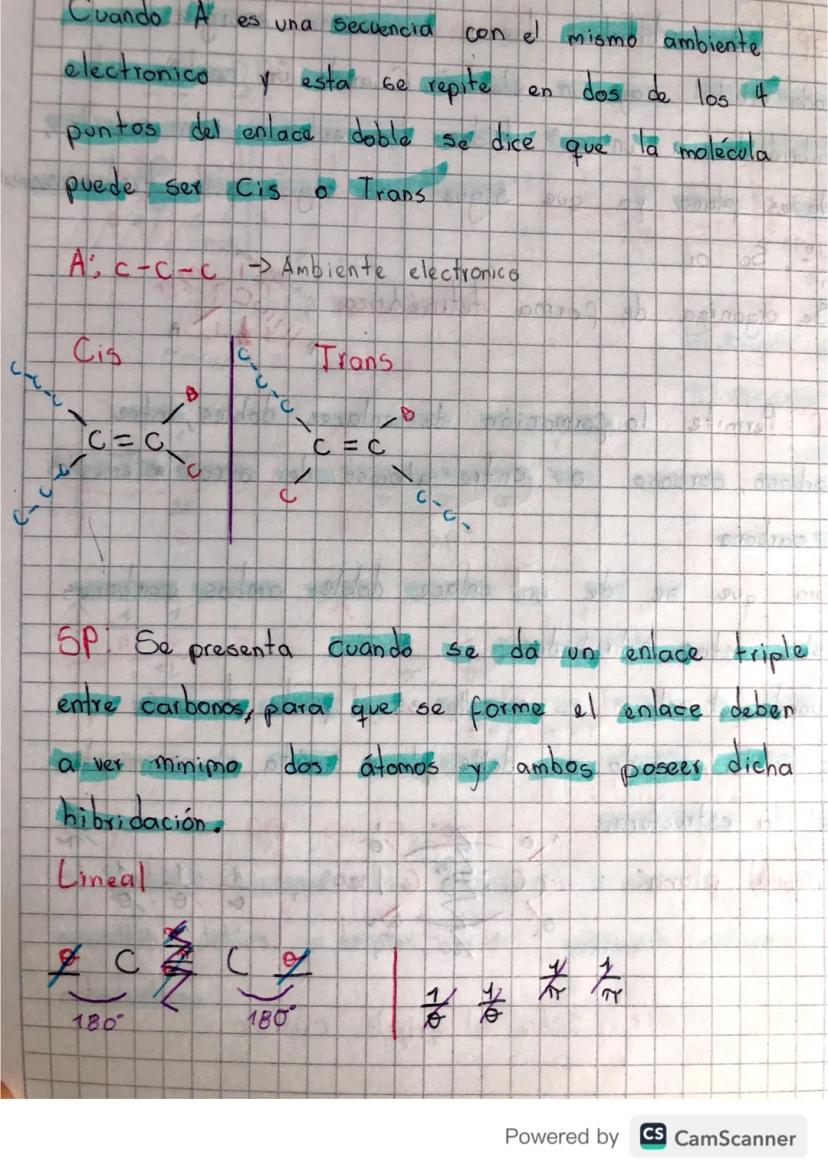 Cuando A es una secuencia con el mismo ambiente
electronico y esta se repite en dos de los 4
puntos del enlace doble se dice que la molécula
puede ser Cis o Trans
A: C-C-C → Ambiente electronico
Cis
Trans
C-C-C
B
C = C
C
C-C-C
C-C-C
B
C = C
C
C-C-
SP: Se presenta cuando se da un enlace triple
entre carbonos, para que se forme el enlace deben
a ver minimo dos átomos y ambos poseer dicha
hibridación.
Lineal
C C
180° 180°
1/θ 1/θ 1/π 1/π
Powered by CS CamScanner